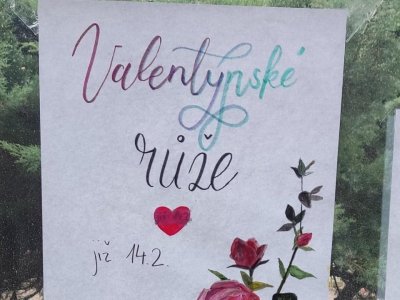 Valentýnské
růže
již 14.2.